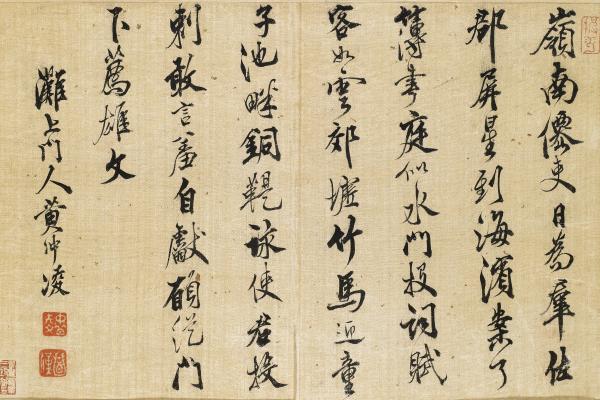 嶺南僊吏日為羣佐
郡屏星到海濱案了
薄書庭似水門投詞賦
客如雲郊墟竹馬迎童
子池畔銅鞮詠使君投
刺敢言羞自獻願從門
下薦雄文
灘上門人黃仲凌